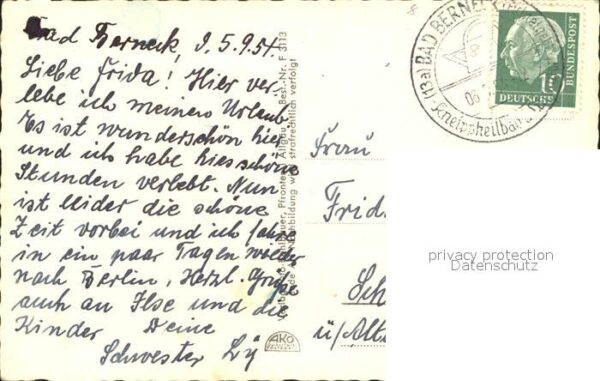 Bad Berneck, d. 5.9.54
Liebe Frida! Hier ver-
lebe ich meinen Urlaub
Es ist wunderschön hier
und ich habe hier schöne
Stunden verlebt. Nun
ist leider die schöne
Zeit vorbei und ich fahre
in ein paar Tagen wieder
nach Berlin, Herzl. Grüße
auch an Ilse und die
Kinder Deine
Schwester
Frau
Frid
Sch
ü/Alt
(13a) BAD BERNECK
Kneippheilbad
DEUTSCHE
BUNDESPOST
10
Pfronten Allgäu Best.-Nr. F 3113
Nachbildung wird strafrechtlich verfolgt
AKO
privacy protection
Datenschutz